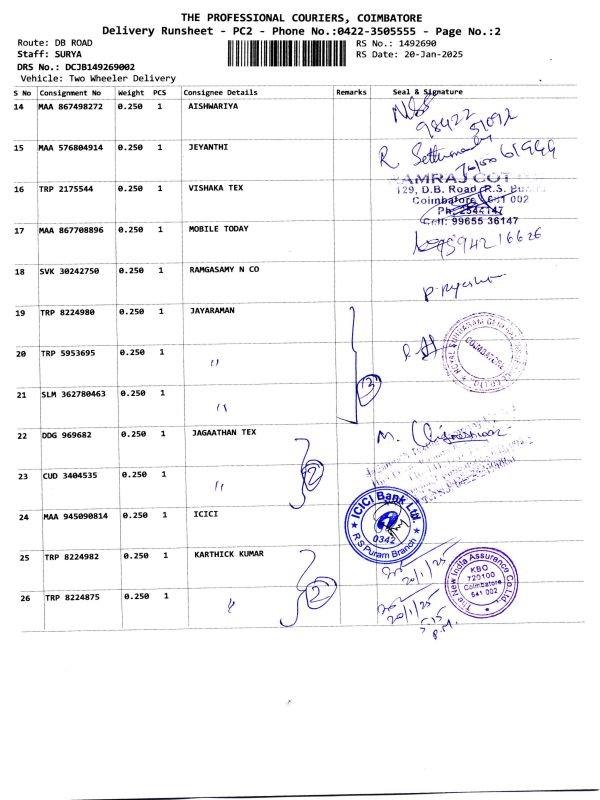 THE PROFESSIONAL COURIERS, COIMBATORE
Delivery Runsheet - PC2 - Phone No.:0422-3505555 - Page No.:2
Route: DB ROAD
RS No.: 1492690
Staff: SURYA
RS Date: 20-Jan-2025
DRS No.: DCJB149269002
Vehicle: Two Wheeler Delivery
S No Consignment No Weight PCS Consignee Details Remarks Seal & Signature
14 MAA 867498272 0.250 1 AISHWARIYA
98422
15 MAA 576804914 0.250 1 JEYANTHI
R
16 TRP 2175544 0.250 1 VISHAKA TEX
129, D.B. Road, R.S.
Coimbatore 641 002
Ph: 2544147
Cell: 99655 36147
17 MAA 867708896 0.250 1 MOBILE TODAY
18 SVK 30242750 0.250 1 RAMGASAMY N CO
19 TRP 8224980 0.250 1 JAYARAMAN
20 TRP 5953695 0.250 1 〃
COIMBATORE
21 SLM 362780463 0.250 1 〃
3
22 DDG 969682 0.250 1 JAGAATHAN TEX
M.
23 CUD 3404535 0.250 1 〃
2
24 MAA 945090814 0.250 1 ICICI
ICICI Bank Ltd.
0342
R S Puram Branch
25 TRP 8224982 0.250 1 KARTHICK KUMAR
20/1/25
The New India Assurance Co. Ltd.
KBO
720100
Coimbatore
641 002
26 TRP 8224875 0.250 1 〃
2
20/1/25
5.15
P.M.